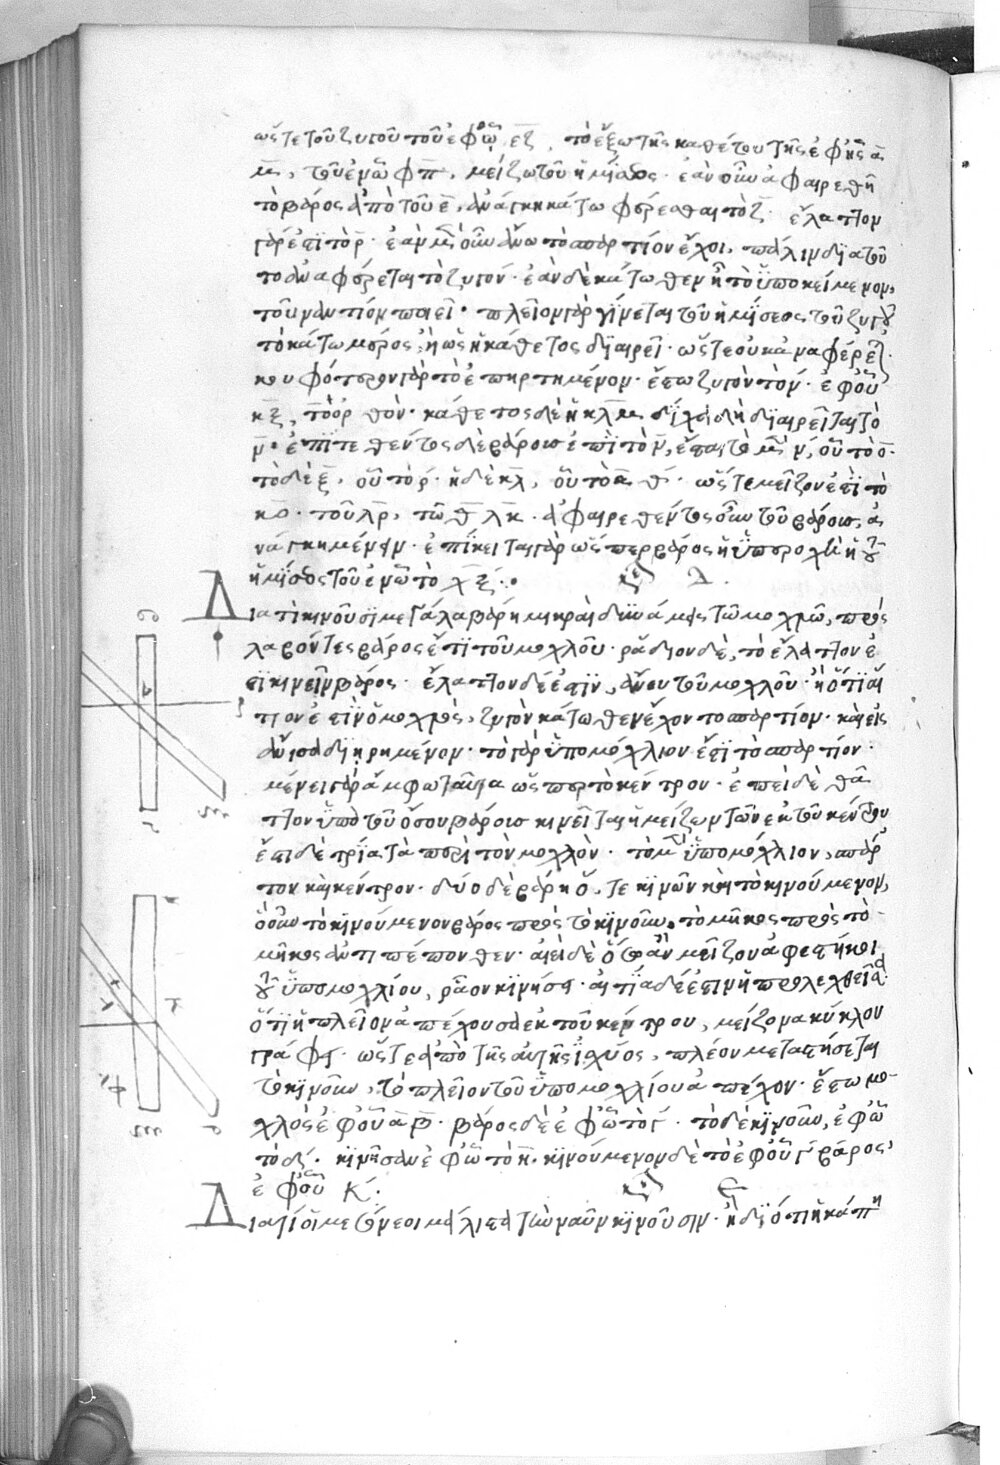 ὥστε τοῦ ζυγοῦ τοῦ ἐφ' ὧ ε̅ζ̅, τὸ ἔξω τῆς καθέτου τῆς ἐφ' ἧς α̅
μ̅, τοῦ ἐν ὧ φ̅π̅, μείζω τοῦ ἡμίσεος· ἐὰν οὖν ἀφαιρεθῆ
τὸ βάρος ἀπὸ τοῦ ε̅, ἀνάγκη κάτω φέρεσθαι τὸ ζ̅· ἔλαττον
γάρ ἐστι τὸ ρ̅· ἐὰν μὲν οὖν ἄνω τὸ σπαρτίον ἔχοι, πάλιν διὰ τοῦ
το ἀναφέρεται τὸ ζυγόν· ἐὰν δὲ κάτωθεν ἦ τὸ ὑποκείμενον,
τοὐναντίον ποιεῖ· πλεῖον γὰρ γίνεται τοῦ ἡμίσεος τοῦ ζυγοῦ
τὸ κάτω μέρος, ἢ ὡς ἡ κάθετος διαιρεῖ· ὥστε οὐκ ἀναφέρεται·
κουφότερον γὰρ τὸ ἐπηρτημένον· ἔστω ζυγὸν τὸ ν̅· ἐφ' οὗ
κ̅ξ̅, τὸ ὀρθόν· κάθετος δὲ ἡ κ̅λ̅μ̅ δίχα δὴ διαιρεῖται τὸ
ν̅· ἐπιτεθέντος δὲ βάρους ἐπὶ τὸ ν̅, ἔσται τὸ μὲν ν̅, οὗ τὸ ο̅·
τὸ δὲ ξ̅, οὗ τὸ ρ̅· ἡ δὲ κ̅λ̅, οὗ τὸ κ̅ θ̅· ὥστε μεῖζον ἐστὶ τὸ
κ̅ο̅· τοῦ λ̅ρ̅, τῶ θ̅λ̅κ̅· ἀφαιρεθέντος οὖν τοῦ βάρους, ἀ
νάγκη μένειν· ἐπίκειται γὰρ ὥσπερ βάρος ἡ ὑπεροχὴ ἡ τοῦ
ἡμίσεος τοῦ ἐν ὧ τὸ χ̅ξ̅:· Δ.
Διατί κινοῦσι μεγάλα βάρη μικραὶ δυνάμεις τῶ μοχλῶ, προς
λαβόντες βάρος ἔτι τοῦ μοχλοῦ· ῥάδιον δὲ, τὸ ἔλαττον ἐ
στὶ κινεῖν βάρος· ἔλαττον δέ ἐστιν, ἄνευ τοῦ μοχλοῦ· ἢ ὅτι αἴ
τιον ἐστὶν ὁ μοχλὸς, ζυγὸν κάτωθεν ἔχον τὸ σπαρτίον· καὶ εἰς
ἄνισα διῃρημένον· τὸ γὰρ ὑπομόχλιον ἐστὶ τὸ σπαρτίον·
μένει γὰρ ἄμφω ταῦτα ὥσπερ τὸ κέντρον· ἐπεὶ δὲ θᾶ
ττον ὑπὸ τοῦ ἴσου βάρους κινεῖται ἡ μείζων τῶν ἐκ τοῦ κέντρου
ἔστι δὲ τρία τὰ περὶ τὸν μοχλὸν· τὸ μὲν ὑπομόχλιον, σπάρ
τον καὶ κέντρον· δύο δὲ βάρη ὅ, τε κινῶν καὶ τὸ κινούμενον,
ὃ οὖν τὸ κινούμενον βάρος πρὸς τὸ κινοῦν, τὸ μῆκος πρὸς τὸ
μῆκος ἀντιπέπονθεν· αἰεὶ δὲ ὅσω ἂν μεῖζον ἀφεστήκοι
τοῦ ὑπομοχλίου, ῥᾶον κινήσει· αἰτία δέ ἐστιν ἡ προλεχθεῖσα·
ὅτι ἡ πλεῖον ἀπέχουσα ἐκ τοῦ κέντρου, μείζονα κύκλον
γράφει· ὥστε ἀπὸ τῆς αὐτῆς ἰσχύος, πλέον μεταστήσεται
τὸ κινοῦν, τὸ πλεῖον τοῦ ὑπομοχλίου ἀπέχον· ἔστω μο
χλὸς ἐφ' οὗ α̅ β̅· βάρος δὲ ἐφ' ὧ τὸ γ̅· τὸ δὲ κινοῦν, ἐφ' ὧ
τὸ δ̅ζ̅· κινῆσαν ἐφ' ὧ τὸ η̅· κινούμενον δὲ τὸ ἐφ' οὗ γ̅ βάρος,
ἐφ' οὗ Κ:
Διατί οἱ μεσόνεοι μάλιστα τὴν ναῦν κινοῦσιν· ἢ διότι ἡ κώπη